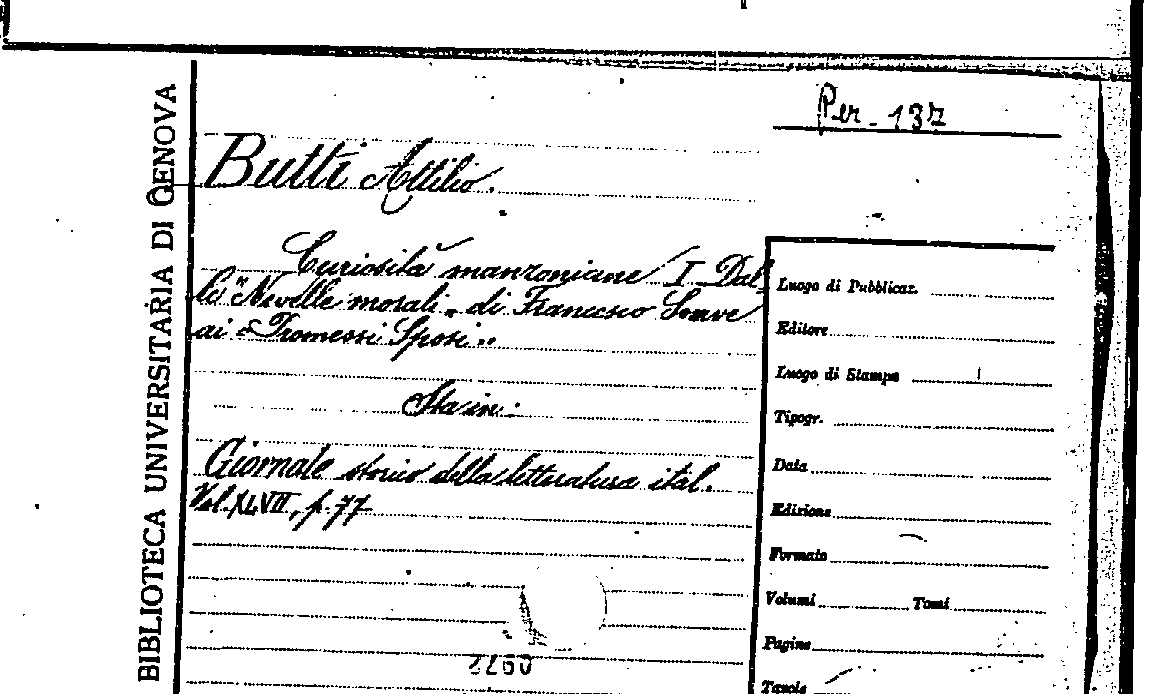 BIBLIOTECA UNIVERSITARIA DI GENOVA
Per - 137
Butti Attilio.
Curiosità manzoniane / I Dal-
le "Novelle morali„ di Francesco Soave
ai "Promessi Sposi„
Sta in:
Giornale storico della letteratura ital.
Vol. XLVII, p. 77
Luogo di Pubblicaz.
Editore
Luogo di Stampa
Tipogr.
Data
Edizione
Formato
Volumi Tomi
Pagine
Tavole